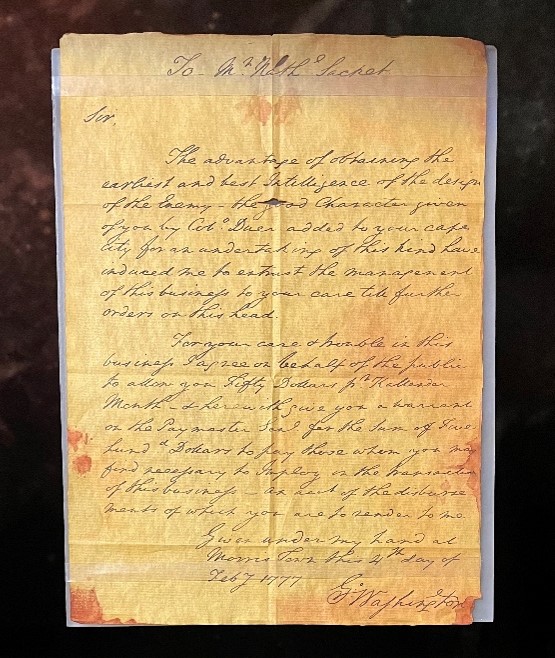 To Mr. Nathl. Sacket
Sir,
The advantage of obtaining the
earliest and best Intelligence of the design
of the Enemy - the good Character given
of you by Colo. Duer added to your capa
city for an undertaking of this kind have
induced me to entrust the management
of this business to your care till further
orders on this head.
For your care & trouble in this
business I agree on behalf of the public
to allow you Fifty Dollars pr. Kallendar
Month - & herewith give you a warrant
on the Paymaster Genl. for the Sum of Five
hund d Dollars to pay those whom you may
find necessary to Imploy in the transaction
of this business - an acct of the disburse
ments of which you are to render to me
Given under my hand at
Morris Town this 4th day of
Feby 1777
Go. Washington